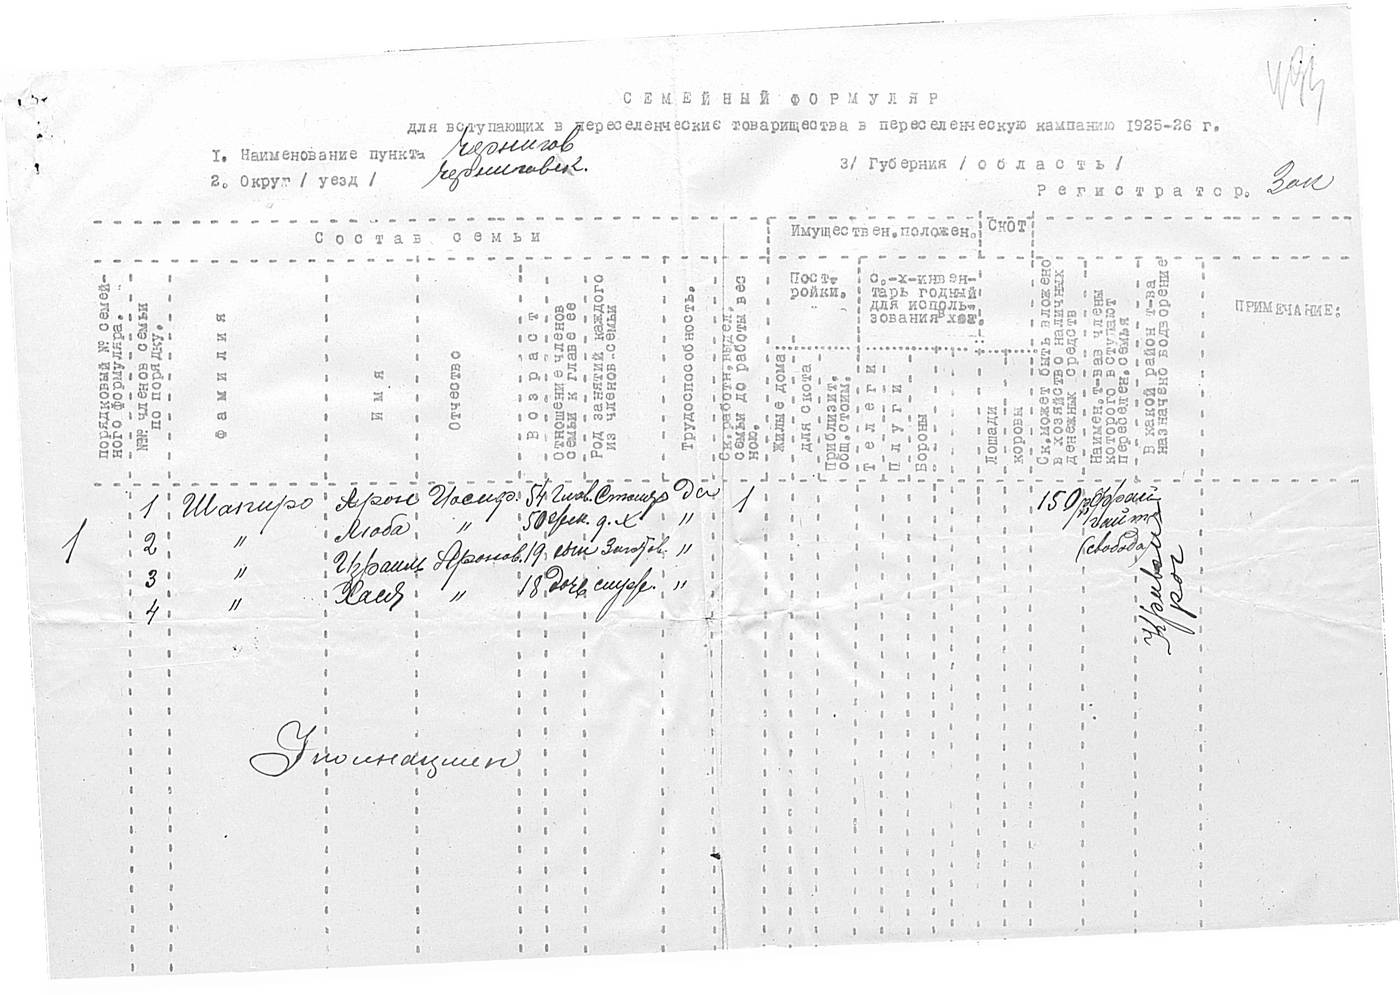 СЕМЕЙНЫЙ ФОРМУЛЯР
для вступающих в переселенческие товарищества в переселенческую кампанию 1925-26 г.
1. Наименование пункта Чернигов
2. Округ / уезд / Черниговск.
3/ Губерния / область /
Регистратор. Зак
Состав семьи
Имуществен. положен.
Скот
порядковый № семей-
ного формуляра.
№№ членов семьи
по порядку.
Фамилия
Имя
Отчество
Возраст
отношение членов
семьи к главе ее
Род занятий каждого
из членов семьи
Трудоспособность.
Ск. работн. выдел.
семьи до работы вес
ною.
Пост-
ройки.
с.-х-инвен-
тарь годный
для исполь-
зования в хоз.
Жилые дома
для скота
Приблизит.
общ. стоим.
Телеги
Плуги
Бороны
Лошади
коровы
Ск. может быть вложено
в хозяйство наличных
денежных средств
Наимен. т-ва в члены
которого вступают
переселен. семья
В какой район т-ва
назначено водворение
ПРИМЕЧАНИЕ:
1
1 Шапиро Арон Иосиф. 54 Глав. Столяр да 1 150 р.
2 " Люба " 50 д. х "
3 " Израиль Аронов. 19 сын "
4 " Хася " 18 дочь "
Фрай
(свобода)
Кривой
рог